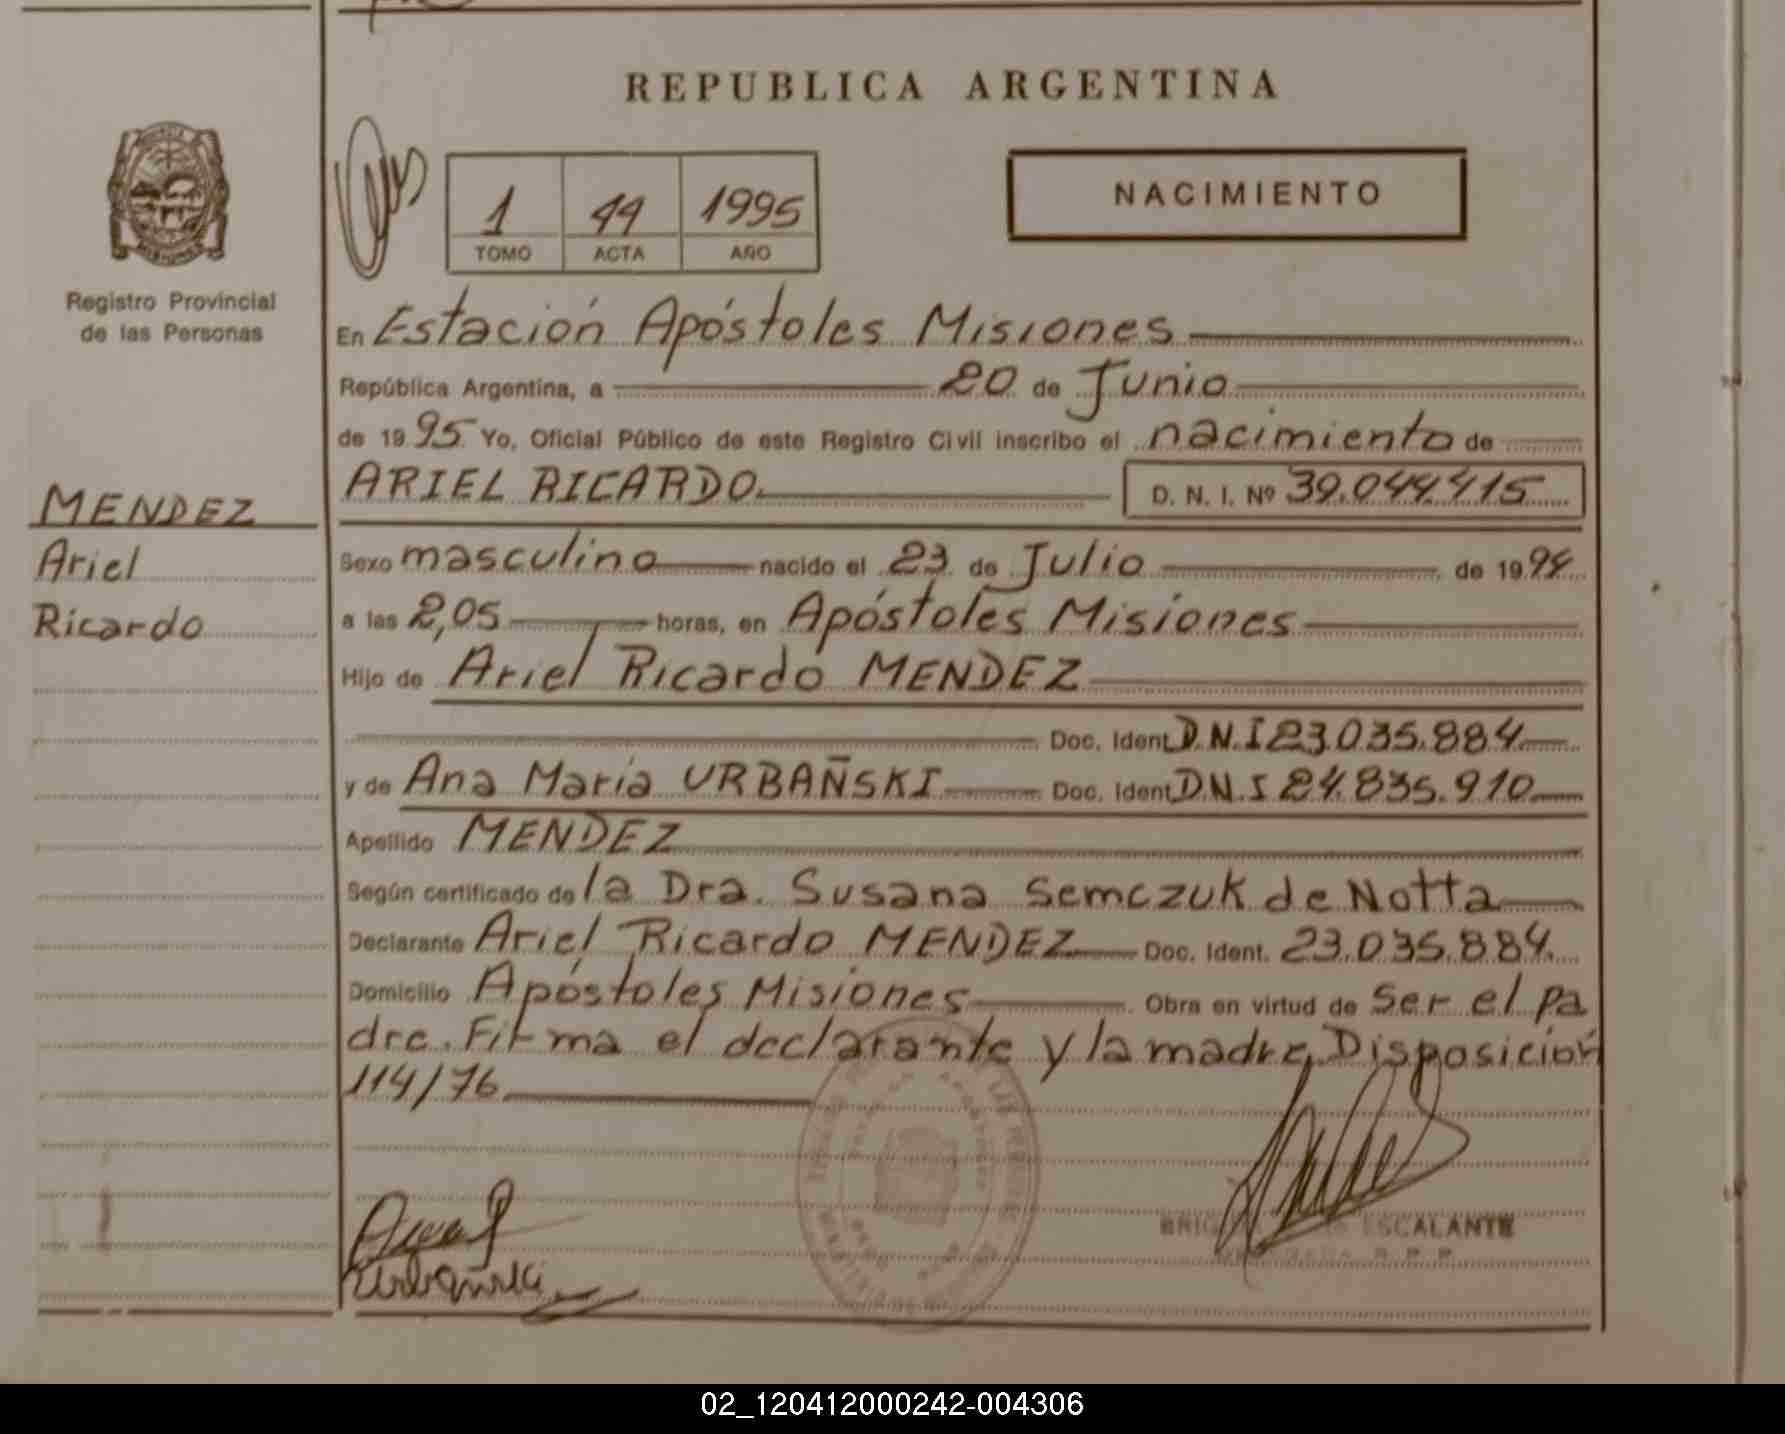 REPUBLICA ARGENTINA
NACIMIENTO
1 44 1995
TOMO ACTA AÑO
Registro Provincial
de las Personas
MENDEZ
Ariel
Ricardo
En Estación Apóstoles Misiones
República Argentina, a 20 de Junio
de 1995 Yo, Oficial Público de este Registro Civil inscribo el nacimiento de
ARIEL RICARDO D. N. I. Nº 39.044.415
Sexo masculino nacido el 23 de Julio de 1994
a las 2,05 horas, en Apóstoles Misiones
Hijo de Ariel Ricardo MENDEZ
Doc. Ident D.N.I 23.035.884
y de Ana Maria URBAÑSKI Doc. Ident D.N.I 24.835.910
Apellido MENDEZ
Según certificado de la Dra. Susana Semczuk de Notta
Declarante Ariel Ricardo MENDEZ Doc. Ident. 23.035.884
Domicilio Apóstoles Misiones Obra en virtud de Ser el pa
dre. Firma el declarante y la madre, Disposición
114/76
Urbañski
ESCALANTE
02_120412000242-004306